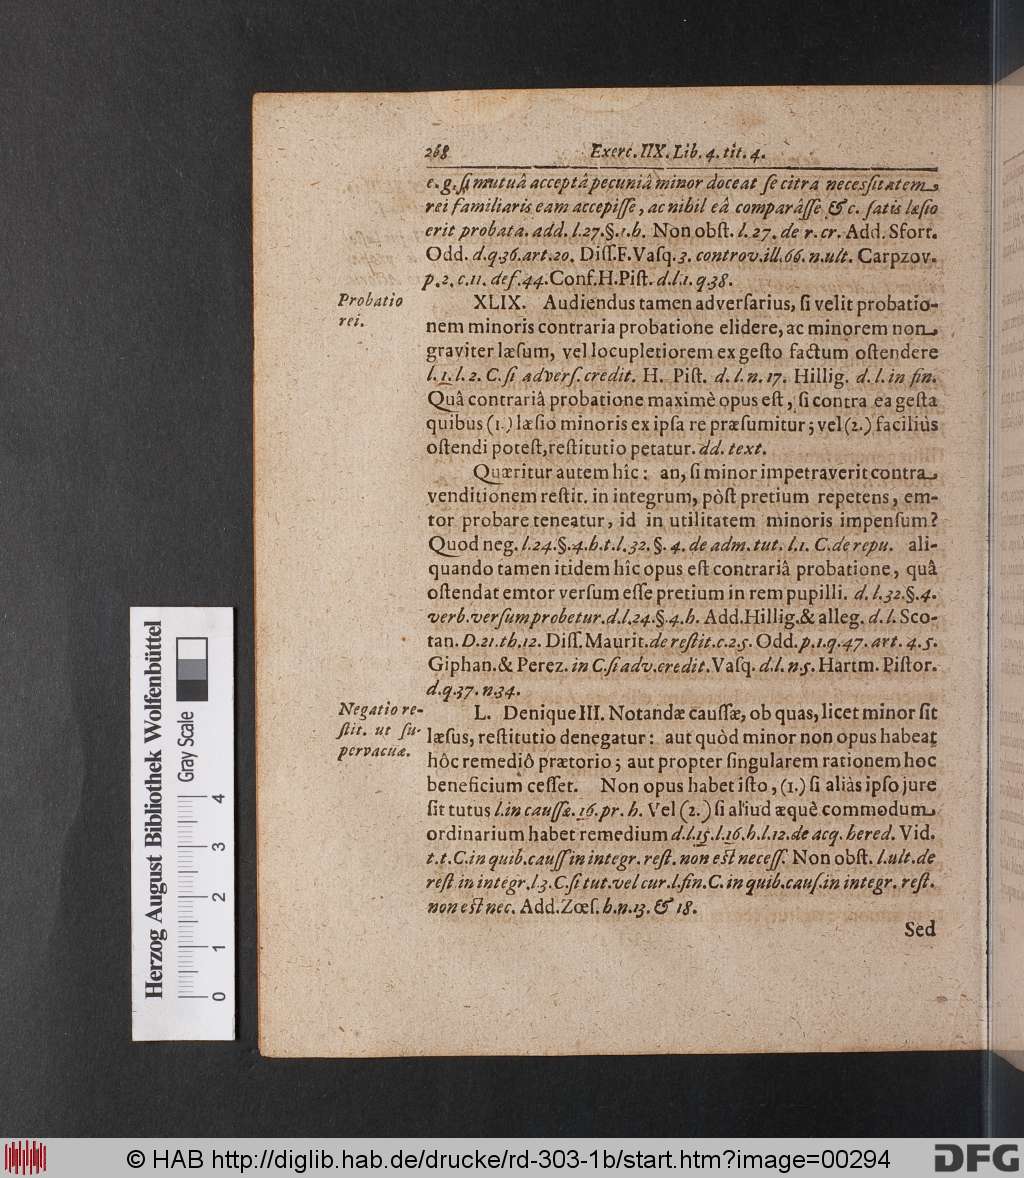 268 Exerc. IIX. Lib. 4. tit. 4.
e. g. si mutuâ acceptâ pecuniâ minor doceat se citra necessitatem
rei familiaris eam accepisse, ac nihil eâ comparâsse & c. satis læsio
erit probata. add. l. 27. §. 1. h. Non obst. l. 27. de r. cr. Add. Sfort.
Odd. d. q. 36. art. 20. Diss. F. Vasq. 3. controv. ill. 66. n. ult. Carpzov.
p. 2. c. 11. def. 44. Conf. H. Pist. d. l. 1. q. 38.
Probatio
rei.
XLIX. Audiendus tamen adversarius, si velit probatio-
nem minoris contraria probatione elidere, ac minorem non
graviter læsum, vel locupletiorem ex gesto factum ostendere
l. 1. l. 2. C. si advers. credit. H. Pist. d. l. n. 17. Hillig. d. l. in fin.
Quâ contrariâ probatione maximè opus est, si contra ea gesta
quibus (1.) læsio minoris ex ipsa re præsumitur; vel (2.) faciliùs
ostendi potest, restitutio petatur. dd. text.
Quæritur autem hîc: an, si minor impetraverit contra
venditionem restit. in integrum, pòst pretium repetens, em-
tor probare teneatur, id in utilitatem minoris impensum?
Quod neg. l. 24. §. 4. h. t. l. 32. §. 4. de adm. tut. l. 1. C. de repu. ali-
quando tamen itidem hîc opus est contrariâ probatione, quâ
ostendat emtor versum esse pretium in rem pupilli. d. l. 32. §. 4.
verb. versum probetur. d. l. 24. §. 4. h. Add. Hillig. & alleg. d. l. Sco-
tan. D. 21. th. 12. Diss. Maurit. de restit. c. 25. Odd. p. 1. q. 47. art. 4. 5.
Giphan. & Perez. in C. si adv. credit. Vasq. d. l. n. 5. Hartm. Pistor.
d. q. 37. n. 34.
Negatio re-
stit. ut su-
pervacuæ.
L. Denique III. Notandæ caussæ, ob quas, licet minor sit
læsus, restitutio denegatur: aut quòd minor non opus habeat
hôc remediô prætorio; aut propter singularem rationem hoc
beneficium cesset. Non opus habet isto, (1.) si aliàs ipso jure
sit tutus l. in caussæ. 16. pr. h. Vel (2.) si aliud æquè commodum
ordinarium habet remedium d. l. 15. l. 16. h. l. 12. de acq. hered. Vid.
t. t. C. in quib. causs in integr. rest. non est necess. Non obst. l. ult. de
rest in integr. l. 3. C. si tut. vel cur. l. fin. C. in quib. caus. in integr. rest.
non est nec. Add. Zœs. h. n. 13. & 18.
Sed
Herzog August Bibliothek Wolfenbüttel
Gray Scale
0 1 2 3 4
© HAB http://diglib.hab.de/drucke/rd-303-1b/start.htm?image=00294
DFG